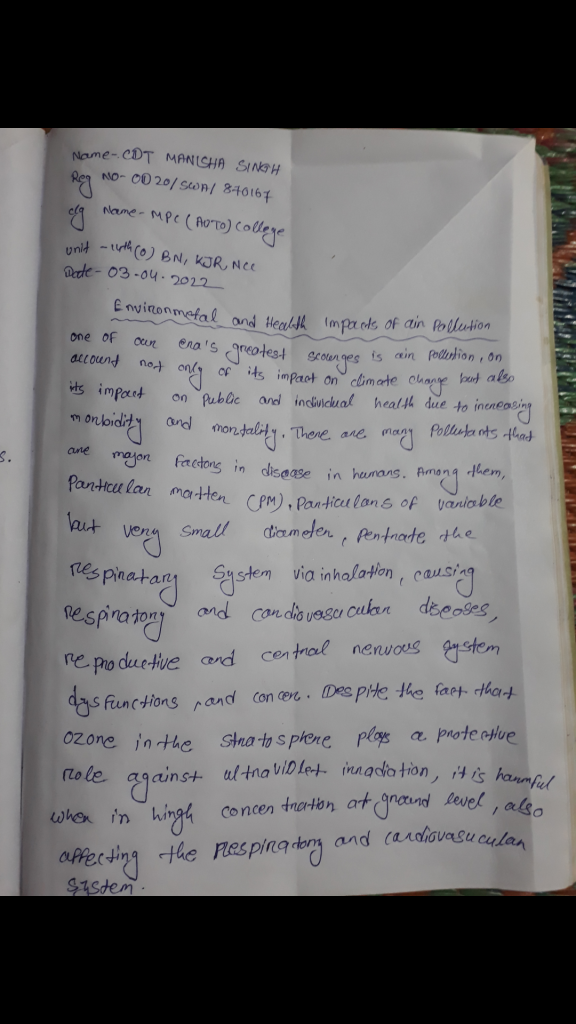 Name- CDT MANISHA SINGH
Reg NO- OD20/SWA/870167
clg Name- MPC (AUTO) College
unit - 14th(O) BN, KJR, NCC
Date- 03-04-2022
Environmetal and Health Impacts of air Pollution
one of our era's greatest scourges is air pollution, on
account not only of its impact on climate change but also
its impact on public and individual health due to increasing
morbidity and mortality. There are many Pollutants that
are major factors in disease in humans. Among them,
Particular matter (PM), Particulars of variable
but very small diameter, pentrate the
respiratary system via inhalation, causing
respiratory and cardiovasucular diseoses,
reproductive and central nervous system
dysfunctions, and concer. Despite the fact that
ozone in the stratosphere plays a protective
role against ultraviolet irradiation, it is harmful
when in hingh concentration at ground level, also
affecting the respiratory and cardiovasucular
system.
s.